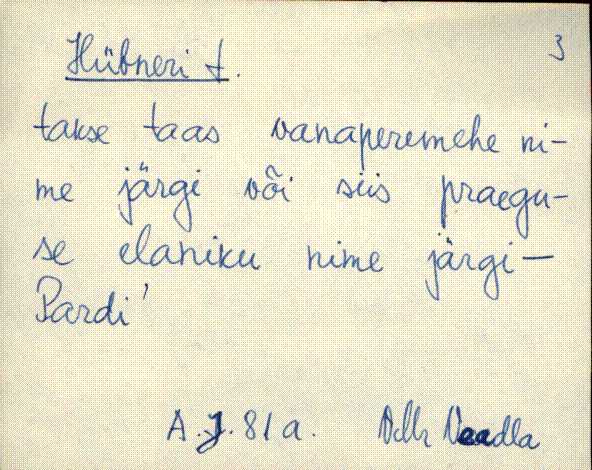 3
Hübneri t.
takse taas vanaperemehe ni-
me järgi või siis praegu-
se elaniku nime järgi —
Pardi'
A. J. 81 a. Veadla